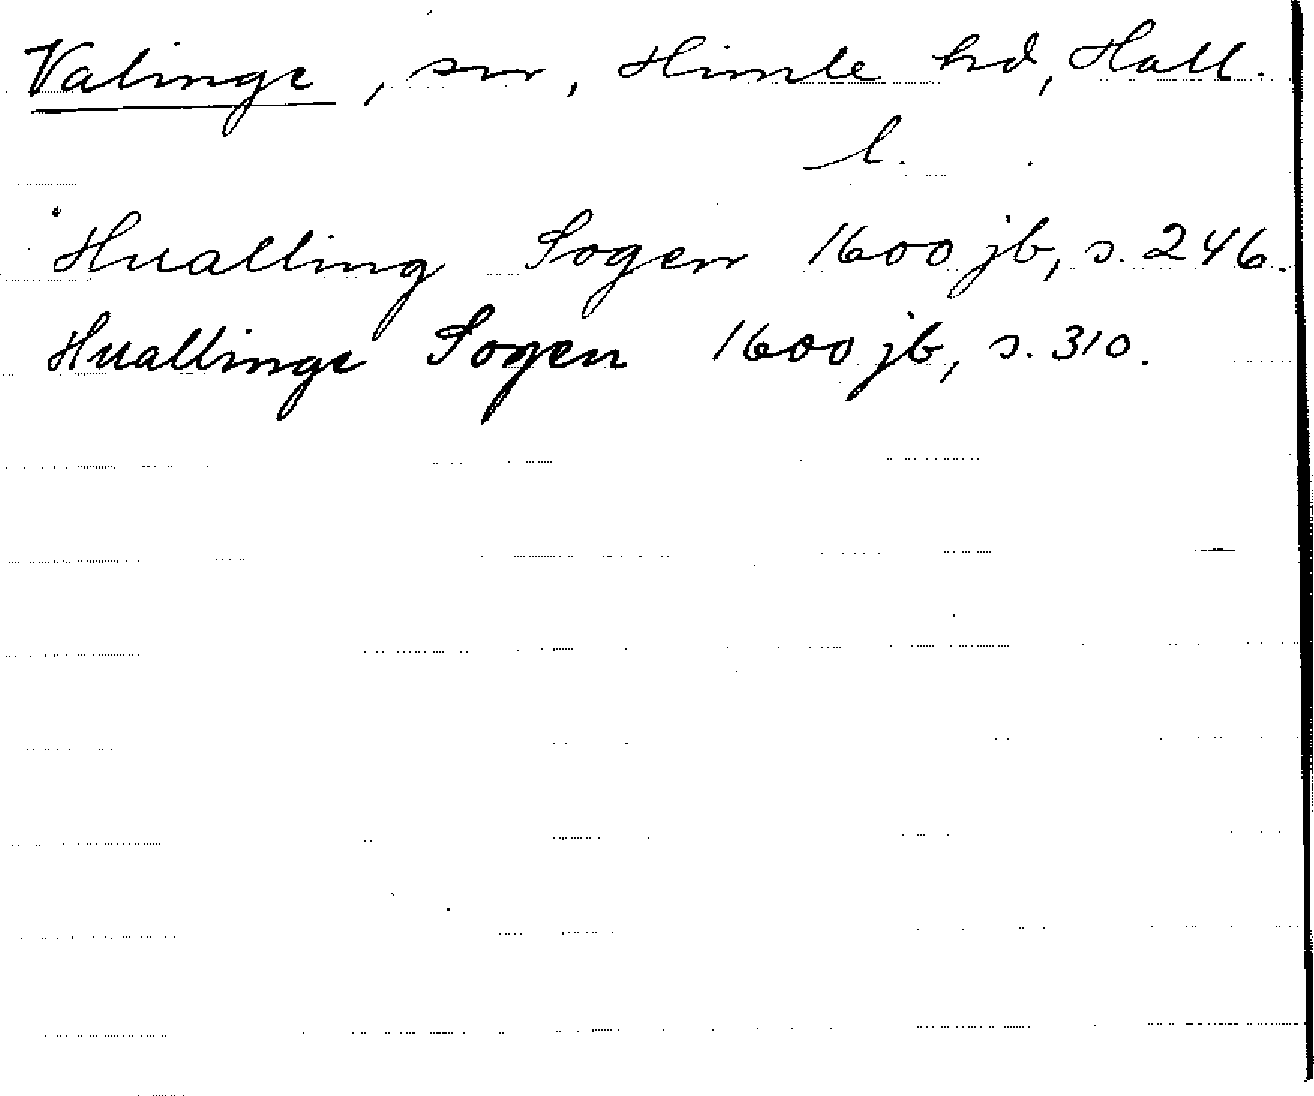 Valinge, sn, Himle hd, Hall.
l.
Hualling Sogen 1600 jb, s. 246.
Huallinge Sogen 1600 jb, s. 310.